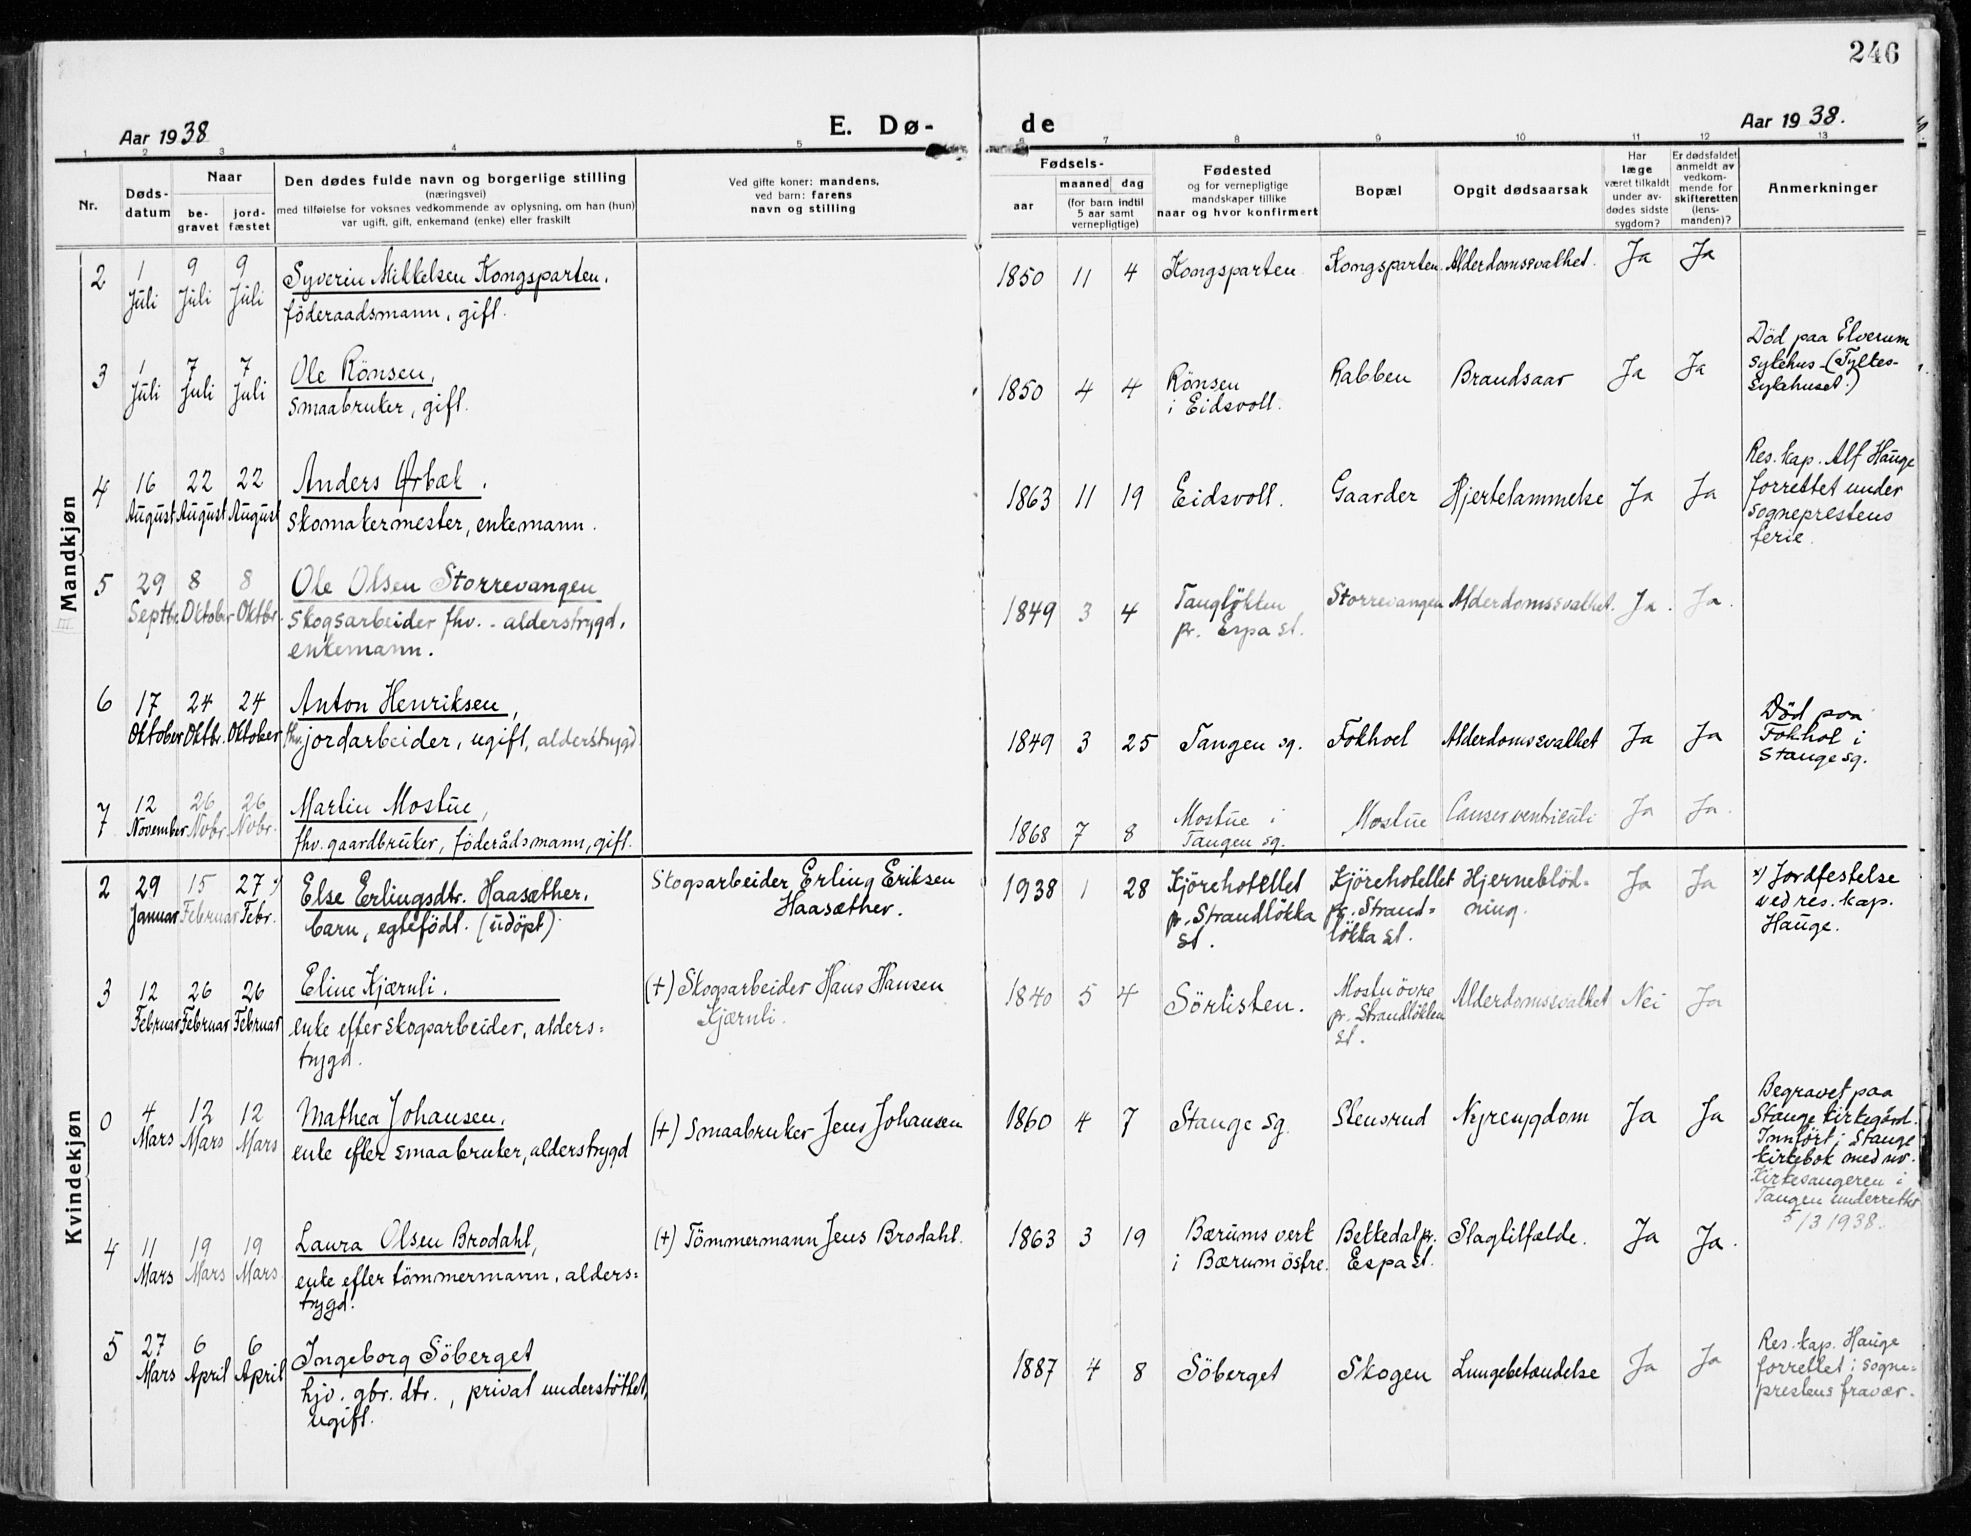 246
Aar 1938
E. Dø-
de
Aar 1938.
1 2 3 4 5 6 7 8 9 10 11 12 13
Nr.
Døds-
datum
Naar
be-
gravet
jord-
fæstet
Den dødes fulde navn og borgerlige stilling
(næringsvei)
med tilføielse for voksnes vedkommende av oplysning, om han (hun)
var ugift, gift, enkemand (enke) eller fraskilt
Ved gifte koner: mandens,
ved barn: farens
navn og stilling
Fødsels-
aar
maaned dag
(for barn indtil
5 aar samt
vernepligtige)
Fødested
og for vernepligtige
mandskaper tillike
naar og hvor konfirmert
Bopæl
Opgit dødsaarsak
Har
læge
været tilkaldt
under av-
dødes sidste
sygdom?
Er dødsfaldet
anmeldt av
vedkom-
mende for
skifteretten
(lens-
manden)?
Anmerkninger
Mandkjøn
2 1 Juli 9 Juli 9 Juli Syverin Mikkelsen Kongsparten, 1850 11 4 Kongsparten Kongsparten Alderdomssvakhet. Ja Ja
föderaadsmann, gift.
3 1 Juli 7 Juli 7 Juli Ole Rönsen, 1850 4 4 Rönsen Rabben Brandsaar Ja Ja Död paa Elverum
smaabruker, gift. i Eidsvoll. sykehus - (Fylkes-
sykehuset.)
4 16 August 22 August 22 August Anders Ørbæk. 1863 11 19 Eidsvoll. Gaarder Hjertelammelse Ja Ja Res. kap. Alf Hauge
skomakermester, enkemann. forrettet under
sogneprestens
ferie.
5 29 Septbr. 8 Oktober 8 Oktbr. Ole Olsen Storrevangen 1849 3 4 Tangløkken Storrevangen Alderdomssvakhet. Ja. Ja.
skogsarbeider fhv. - alderstrygd, pr. Espa st.
enkemann.
6 17 Oktober 24 Oktbr. 24 Oktober Anton Henriksen, 1849 3 25 Tangen sg. Fokhoel Alderdomssvakhet Ja Ja Död paa
fhv. jordarbeider, ugift, alderstrygd Fokhol i
Stange sg.
7 12 November 26 Novbr. 26 Novbr. Martin Mostue, 1868 7 8 Mostue i Mostue Canser ventriculi Ja Ja.
fhv. gaardbruker, föderådsmann, gift. Tangen sg.
Kvindekjøn
2 29 Januar 15 Februar 27 x) Febr. Else Erlingsdtr. Haasæther, Skogsarbeider Erling Eriksen 1938 1 28 Kjörehotellet Kjörehotellet Hjerneblöd- Ja Ja x) Jordfestelse
barn, egtefödt. (udöpt). Haasæther. pr. Strandlökka pr. Strand- ning. ved res. kap.
st. lökka st. Hauge.
3 12 Februar 26 Februar 26 Februar Eline Kjærnli. (+) Skogsarbeider Hans Hansen 1840 5 4 Sörlisten. Mostu övre Alderdomssvakhet Nei Ja
enke efter skogsarbeider, alders- Kjærnli. pr. Strandlökken
trygd. st.
0 4 Mars 12 Mars 12 Mars Mathea Johansen, (+) Smaabruker Jens Johansen 1860 4 7 Stange sg. Stensrud Nyresygdom Ja Ja Begravet paa
enke efter smaabruker, alderstrygd Stange kirkegård.
Innfört i Stange
kirkebok med nr.
Kirkesangeren i
Tangen underrettet
5/3 1938.
4 11 Mars 19 Mars 19 Mars Laura Olsen Brodahl, (+) Tömmermann Jens Brodahl. 1863 3 19 Bærums verk Bekkedal pr. Slagtilfælde. Ja Ja.
enke efter tömmermann, alders- i Bærum östre. Espa st.
trygd.
5 27 Mars 6 April 6 April Ingeborg Söberget 1887 4 8 Söberget Skogen Lungebetændelse Ja Ja Res. kap. Hauge
hjv. gbr. dtr., privat understöttet, forrettet i sogne-
ugift. prestens fravær.